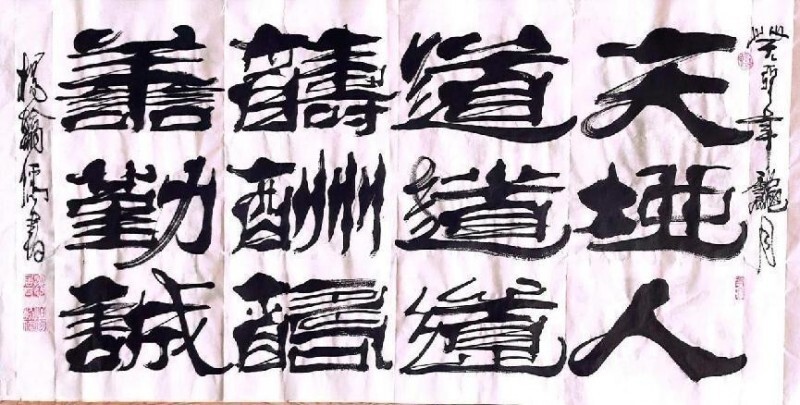 癸卯年龍月
天道醻善
地道酬勤
人道誠
楊翰儒書